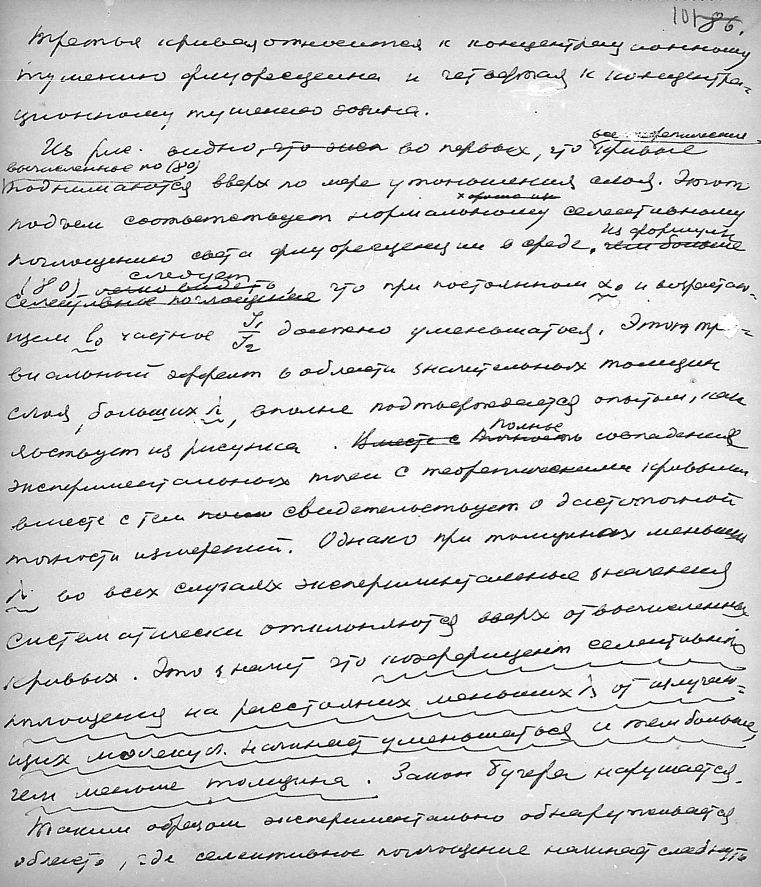 101 86.
Третья кривая относится к концентрационному
тушению флуоресцеина и четвертая к концентра-
ционному тушению эозина.
Из рис. видно, что эксп во первых, что все теоретические кривые
вычисленные по (80)
поднимаются вверх по мере утоньшения слоя. Этот
подъем соответствует нормальному селективному
поглощению света флуоресценции в среде. Из формулы чем больше
(80) следует ясно видеть,
селективное поглощение что при постоянном α₀ и возрастаю-
щем l₀ частное J₁/J₂ должно уменьшаться. Этот три-
виальный эффект в области значительных толщин
слоя, больших λ, вполне подтверждается опытом, как
явствует из рисунка . Вместе с Точность Полное совпадение
экспериментальных точек с теоретическими кривыми
вместе с тем свидетельствует о достаточной
точности измерений. Однако при толщинах меньших
λ во всех случаях экспериментальные значения
систематически отклоняются вверх от вычисленных
кривых. Это значит что коэффициент селективного
поглощения на расстояниях меньших λ от излучаю-
щих молекул начинает уменьшаться и тем больше,
чем меньше толщина. Закон Бугера нарушается.
Таким образом экспериментально обнаруживается
область, где селективное поглощение начинает слабнуть